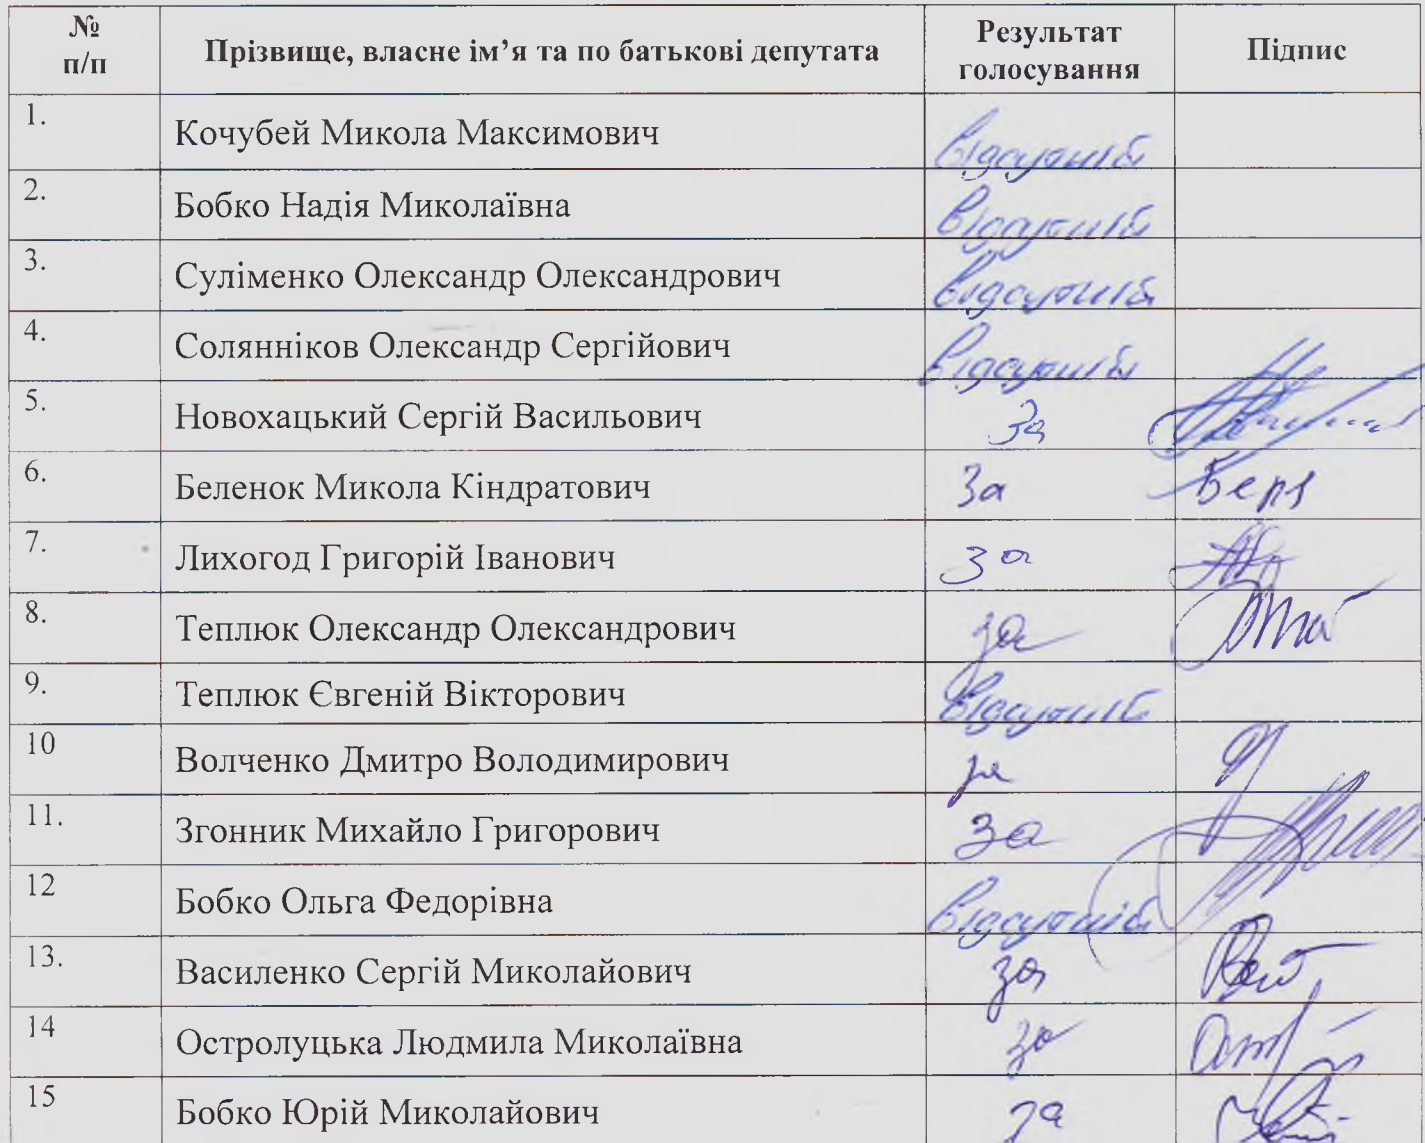 № п/п Прізвище, власне ім’я та по батькові депутата Результат голосування Підпис
1. Кочубей Микола Максимович відсутній
2. Бобко Надія Миколаївна відсутній
3. Суліменко Олександр Олександрович відсутній
4. Солянніков Олександр Сергійович відсутній
5. Новохацький Сергій Васильович За
6. Беленок Микола Кіндратович За
7. Лихогод Григорій Іванович За
8. Теплюк Олександр Олександрович за
9. Теплюк Євгеній Вікторович відсутній
10 Волченко Дмитро Володимирович за
11. Згонник Михайло Григорович За
12 Бобко Ольга Федорівна відсутній
13. Василенко Сергій Миколайович за
14 Остролуцька Людмила Миколаївна за
15 Бобко Юрій Миколайович за